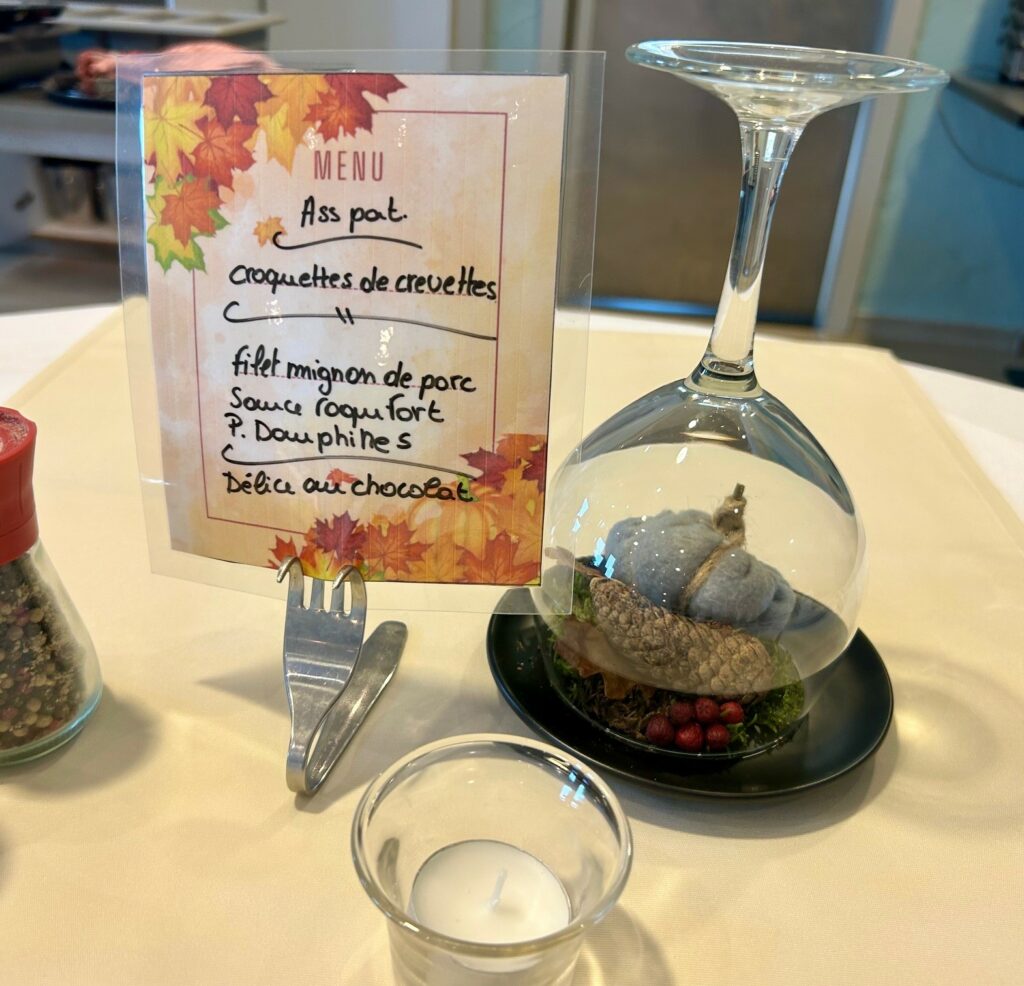 MENU
Ass pat.
croquettes de crevettes
filet mignon de porc
Sauce roquefort
P. Dauphines
Délice au chocolat